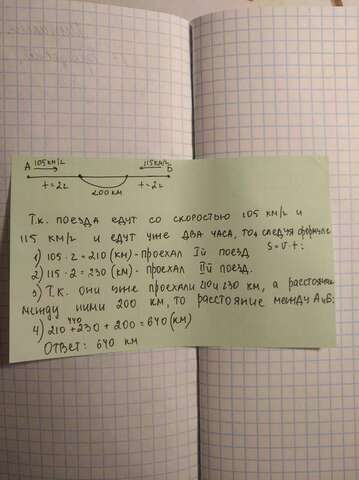 A 105 км/ч 115 км/ч В
t=2ч 200 км t=2ч
Т.к. поезда едут со скоростью 105 км/ч и
115 км/ч и едут уже два часа, то, следуя формуле
S=v·t:
1) 105·2=210 (км)-проехал Iй поезд
2) 115·2=230 (км)-проехал IIй поезд.
3) Т.к. они уже проехали 210 и 230 км, а расстояние
между ними 200 км, то расстояние между А и В:
440
4) 210+230+200=640 (км)
Ответ: 640 км